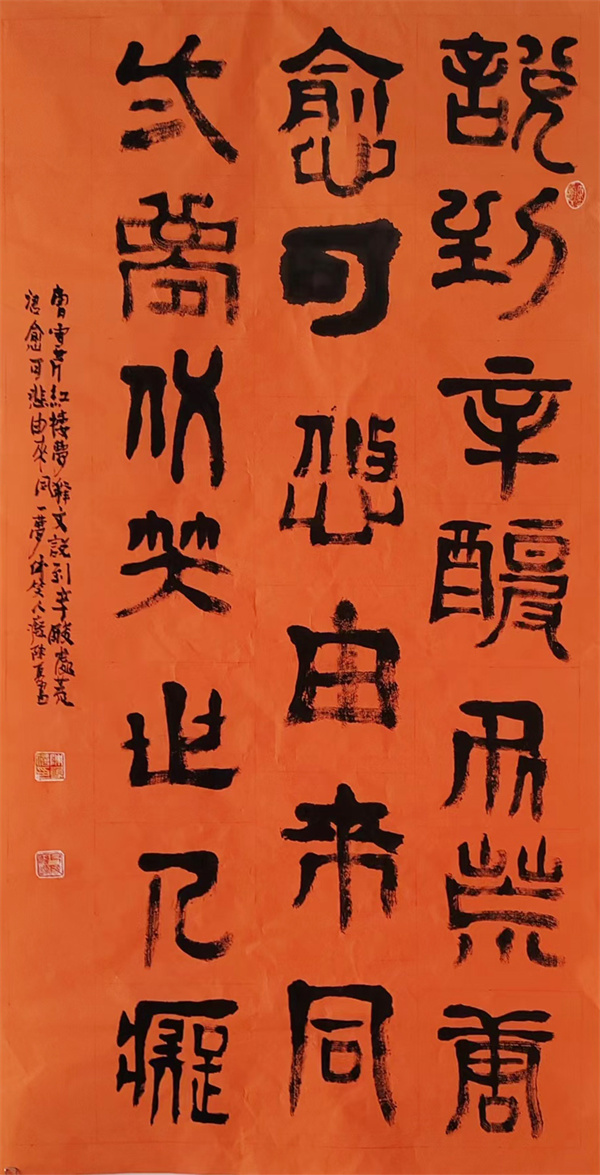 說到辛酸処荒唐
愈可悲由來同
弌夢休笑世人癡
曹雪芹紅樓夢釋文說到辛酸處荒
愈可悲由來同一夢休笑人癡陳書